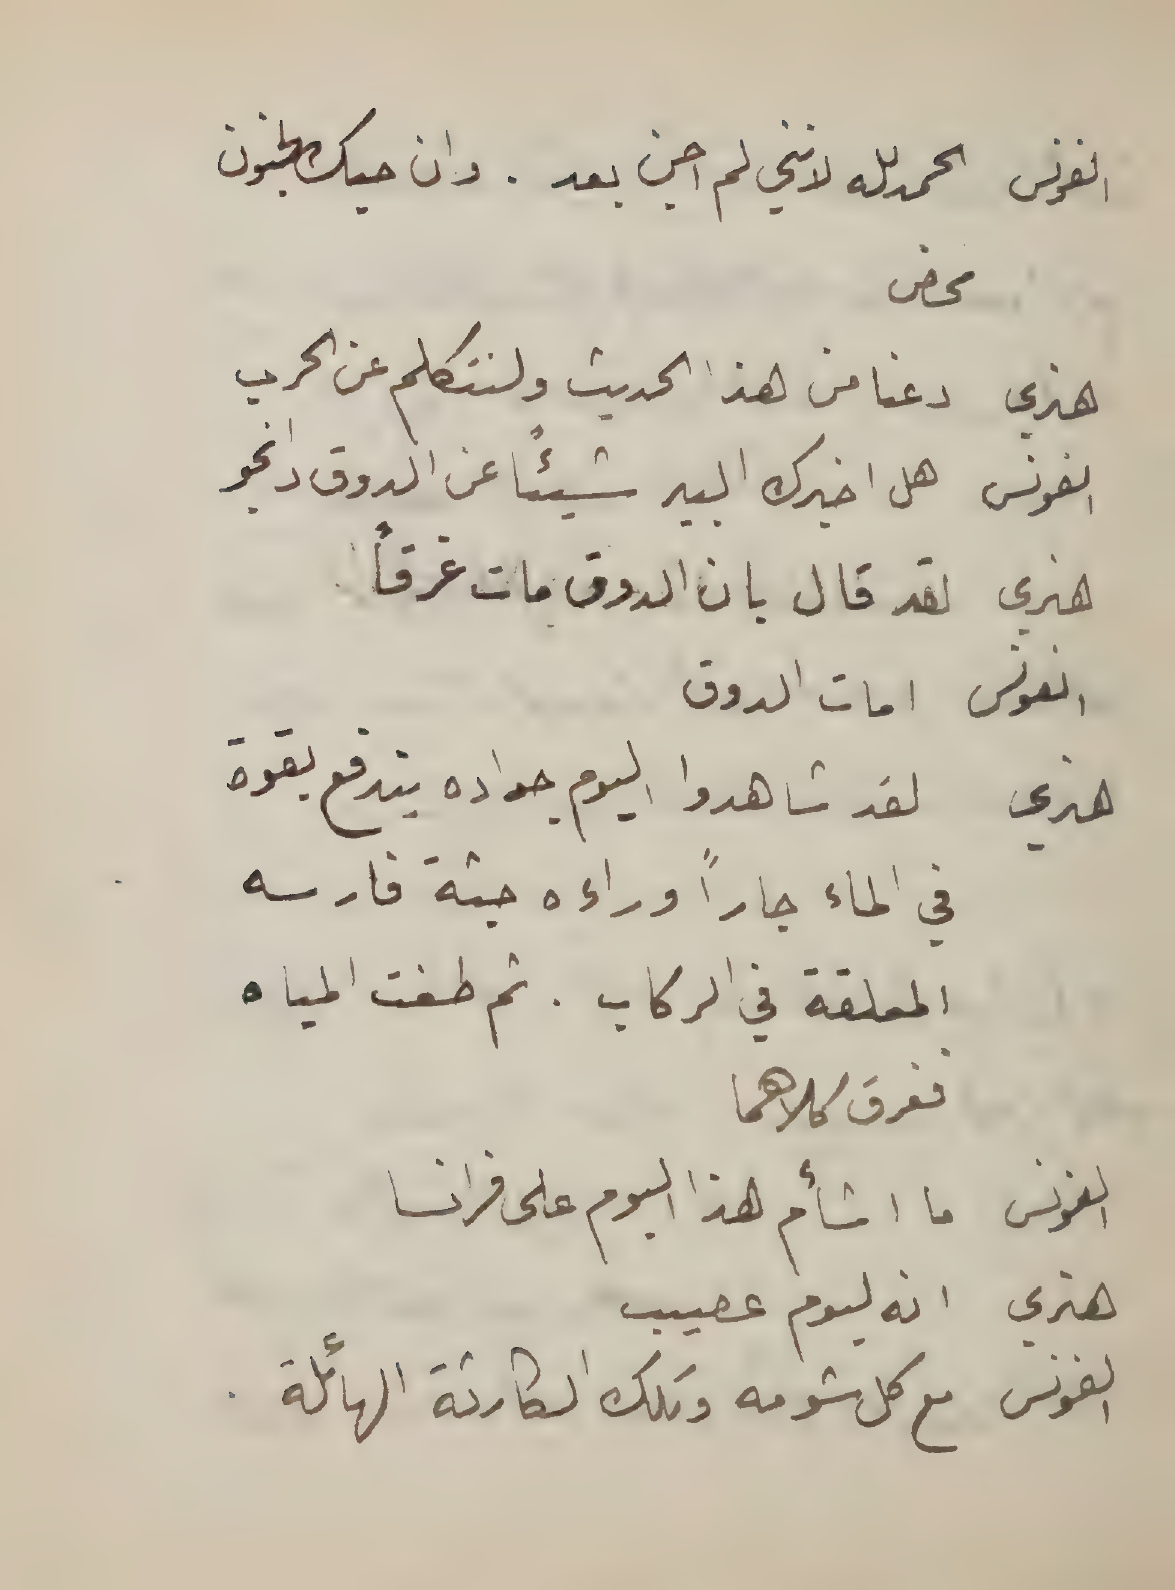 الفونس الحمد لله لانني لم اجن بعد . وان حبك لجنون
محض
هنري دعنا من هذا الحديث ولنتكلم عن الحرب
الفونس هل اخبرك البير شيئًا عن الدوق دانجو
هنري لقد قال بان الدوق مات غرقًا
الفونس امات الدوق
هنري لقد شاهدوا اليوم جواده يندفع بقوة
في الماء جارًا وراءه جثة فارسه
المعلقة في الركاب . ثم طغت المياه
فغرق كلاهما
الفونس ما اشأم هذا اليوم على فرانسا
هنري انه ليوم عصيب
الفونس مع كل شومه وتلك الكارثة الهائلة .